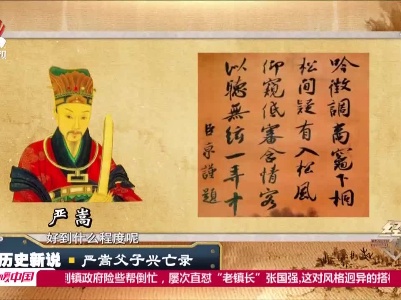 吟徵調商竈下桐
松間疑有入松風
仰窺低審含情客
以聽無絃一弄中
臣京謹題
严嵩
好到什么程度呢
历史新说
严嵩父子兴亡录
中国
到镇政府险些帮倒忙，屡次直怼“老镇长”张国强,这对风格迥异的搭